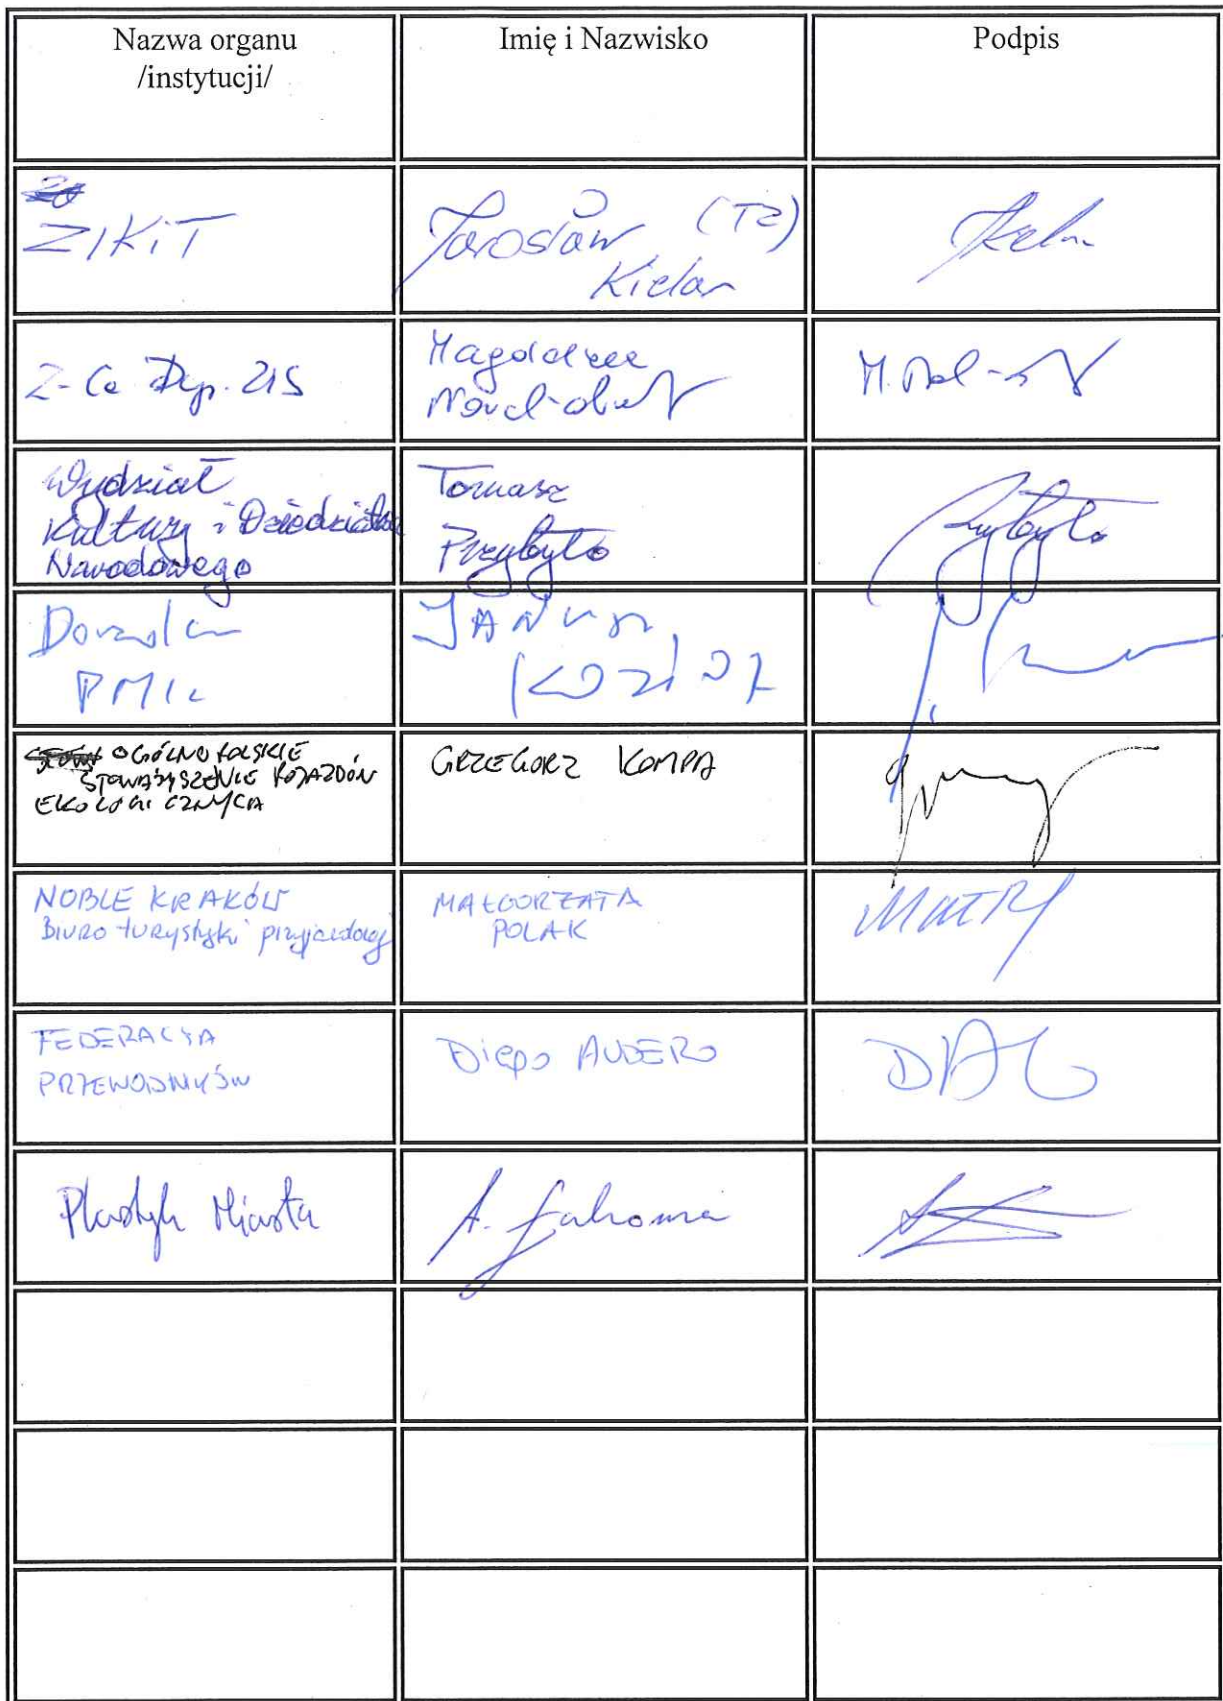 Nazwa organu
/instytucji/
Imię i Nazwisko
Podpis
ZIKiT
Jarosław (TZ)
Kielar
Z-Ca Dyr. ZIS
Magdalena
Wydział
Kultury i Dziedzictwa
Narodowego
Tomasz
Przybyło
Przybyło
Doradca
PMK
JANUSZ
KOZIOŁ
OGÓLNOPOLSKIE
STOWARZYSZENIE POJAZDÓW
EKOLOGICZNYCH
GRZEGORZ KOMPA
NOBLE KRAKÓW
Biuro turystyki przyjazdowej
MAŁGORZATA
POLAK
FEDERACJA
PRZEWODNIKÓW
Diego AUDERO
Plastyk Miasta
A.